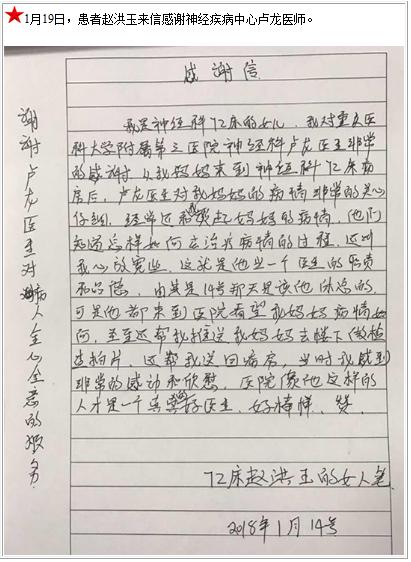 ★1月19日，患者赵洪玉来信感谢神经疾病中心卢龙医师。
感谢信
我是神经科72床的女儿，我对重庆医
科大学附属第三医院神经科卢龙医生非常
的感谢从我妈妈来到神经科72床病
房后，卢龙医生对我妈妈的病情非常的关心
仔细，经常还妈妈的病情，他们
知道怎样如何去治疗病情的过程，这叫
我心放宽些，这就是他当一个医生的
由其是14号那天是该他休息的
可是他都来到医院看望我妈妈病情如
何，至至还帮我送我妈妈去楼下做检
查拍片，还帮我送回病房，当时我感到
非常的感动和欣慰，医院像他这样的
人才是一个真医生，好榜样，赞，
72床赵洪玉的女人笔
2018年1月14号
谢谢卢龙医生对病人全心全意的服务